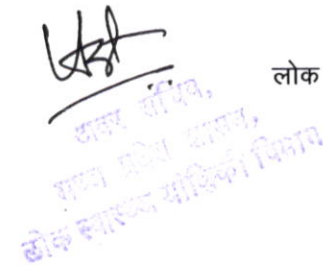 लोक
अवर सचिव,
मध्य प्रदेश शासन,
लोक स्वास्थ्य यांत्रिकी विभाग